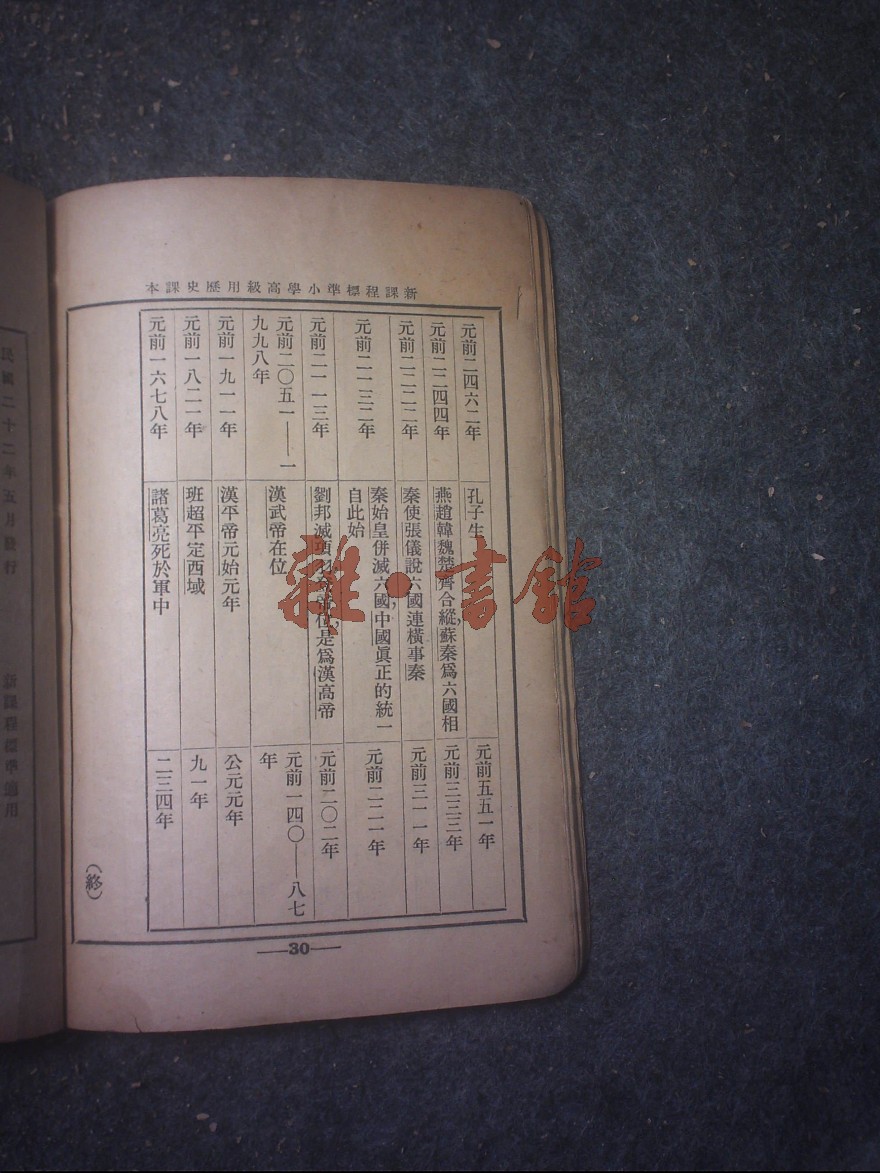 新課程標準小學高級用歷史課本
元前二四六二年
孔子生
元前五五一年
元前二二四四年
燕趙韓魏楚齊合縱，蘇秦爲六國相
元前三三三年
元前二二二二年
秦使張儀說六國連橫事秦
元前三一一年
元前二一三二年
秦始皇併滅六國，中國眞正的統一
自此始
元前二二一年
元前二一一三年
劉邦滅項 是爲漢高帝
元前二〇二年
元前二〇五一——一
九九八年
漢武帝在位
元前一四〇——八七
年
元前一九一一年
漢平帝元始元年
公元元年
元前一八二一年
班超平定西域
九一年
元前一六七八年
諸葛亮死於軍中
二三四年
（終）
——30——
雜·書館
民國二十二年五月發行
新課程標準適用